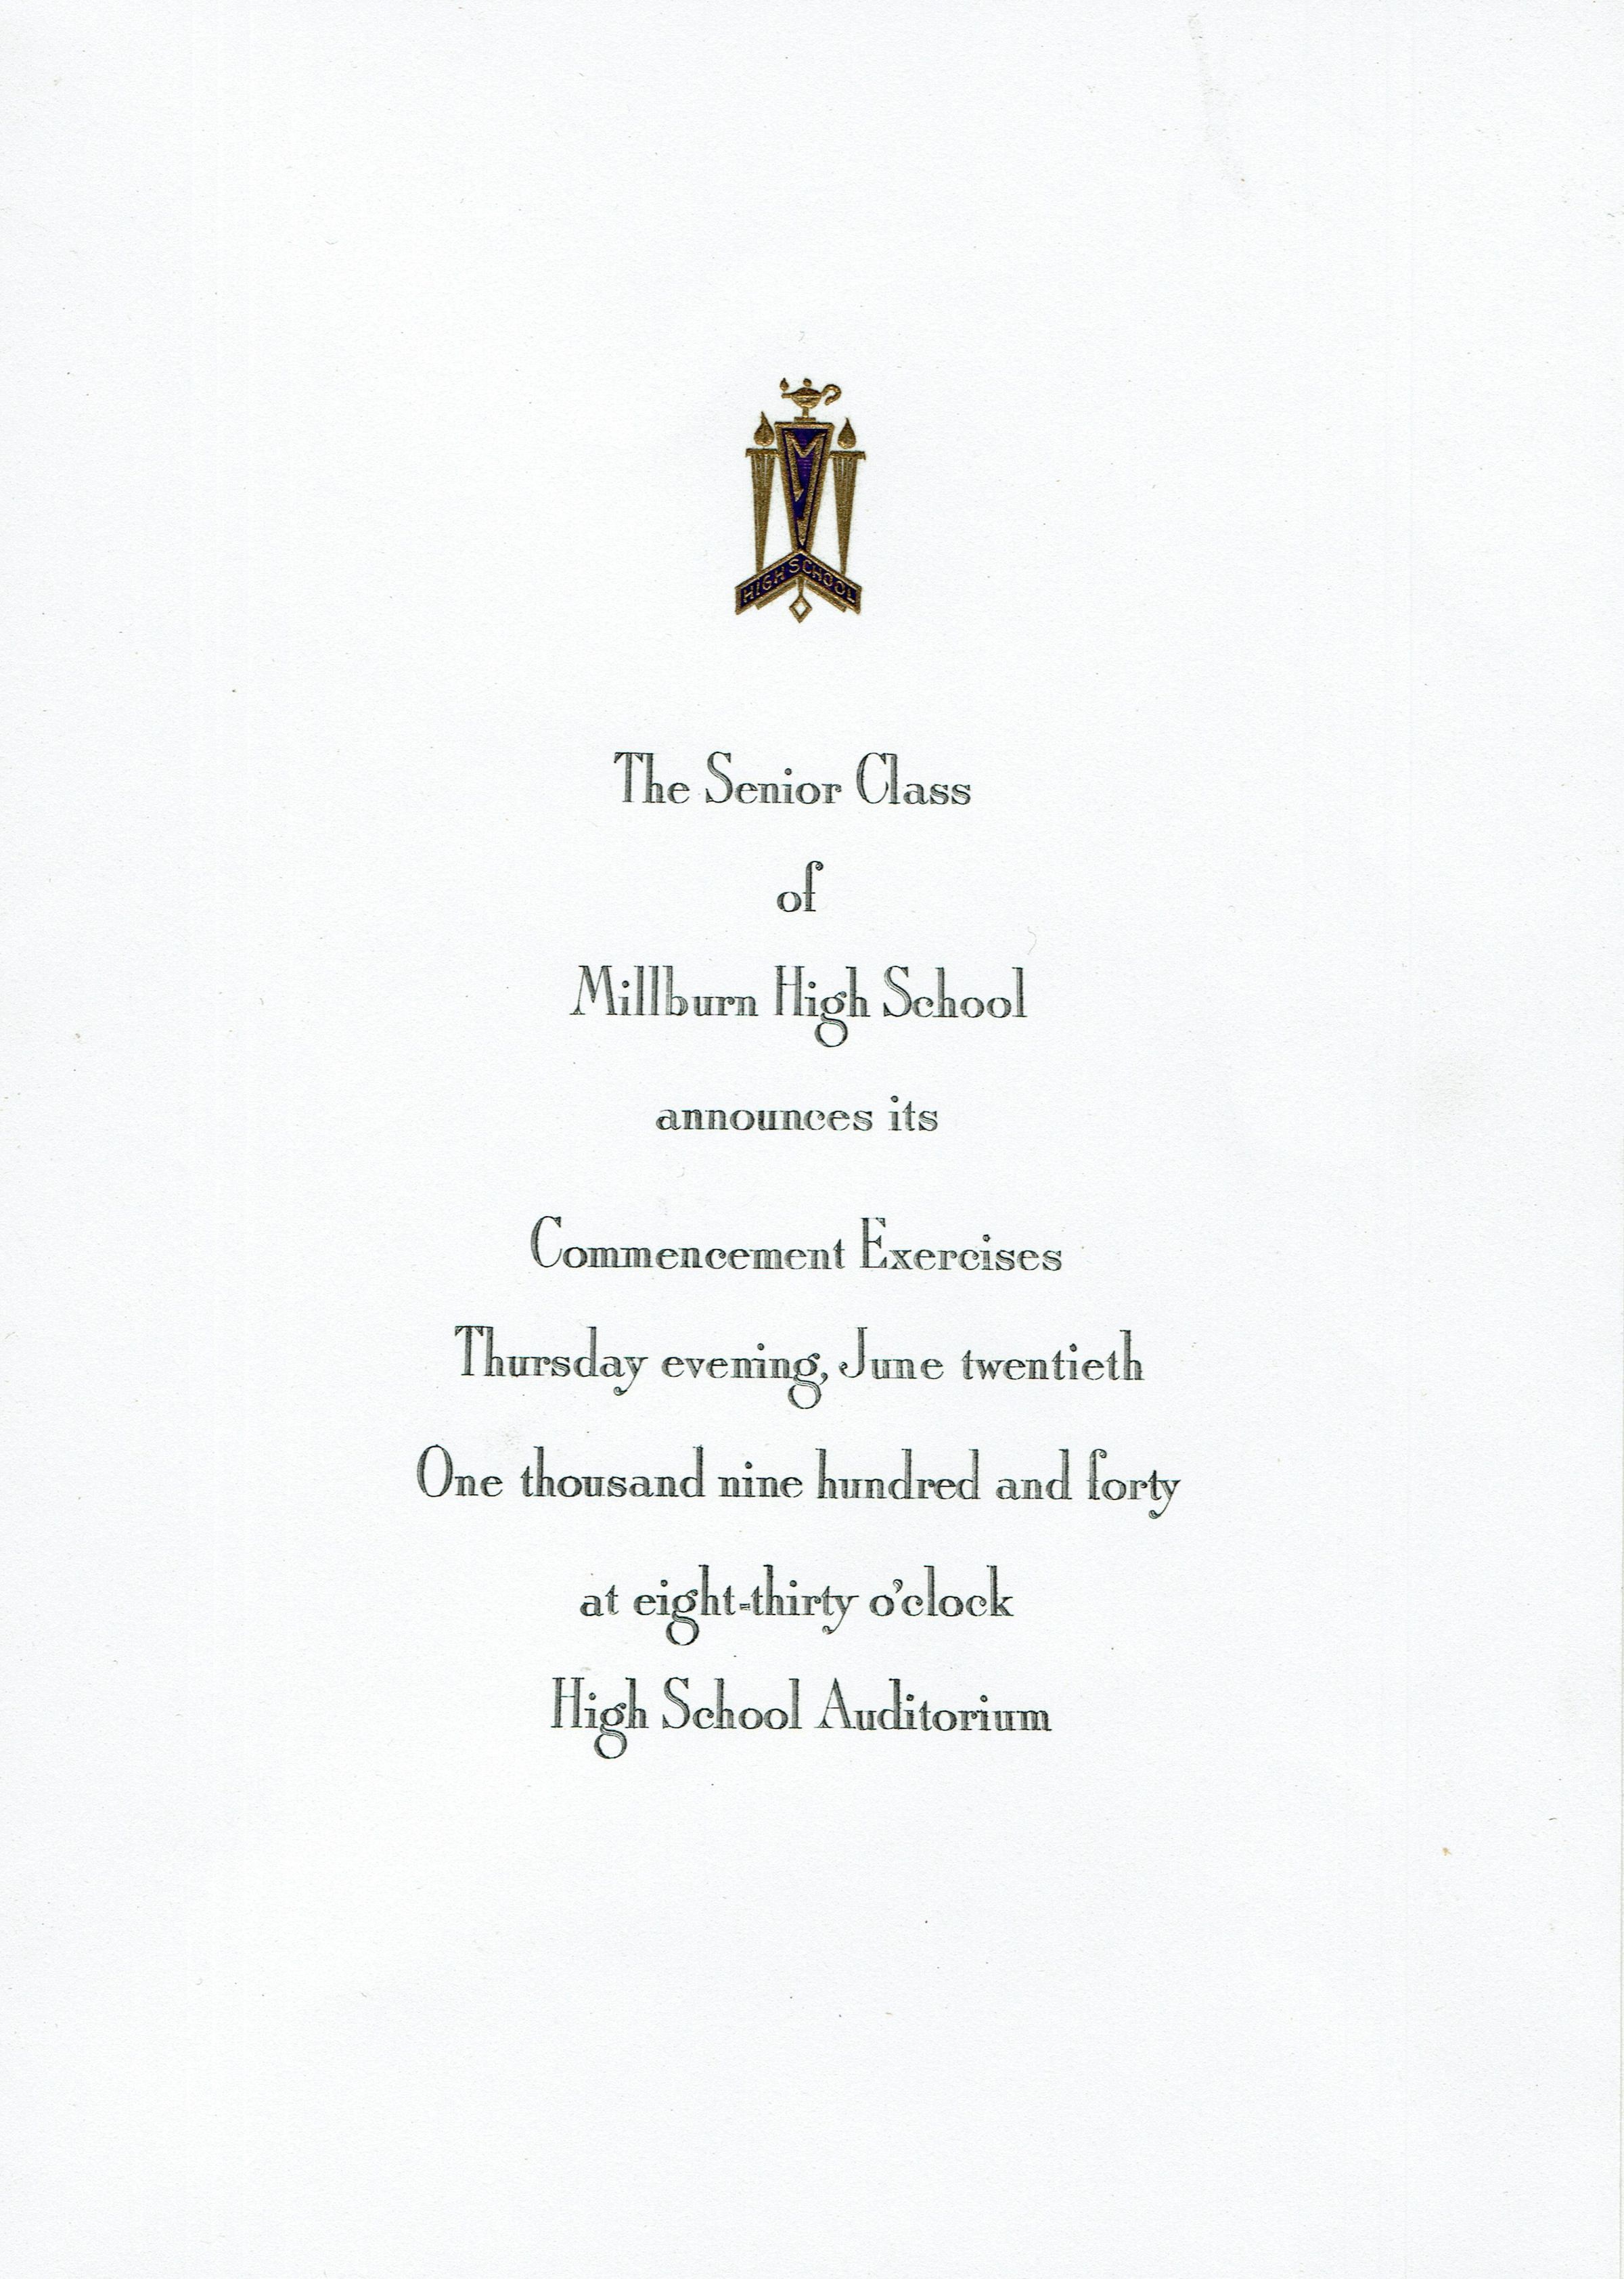 M
HIGH SCHOOL
The Senior Class
of
Millburn High School
announces its
Commencement Exercises
Thursday evening, June twentieth
One thousand nine hundred and forty
at eight-thirty o'clock
High School Auditorium